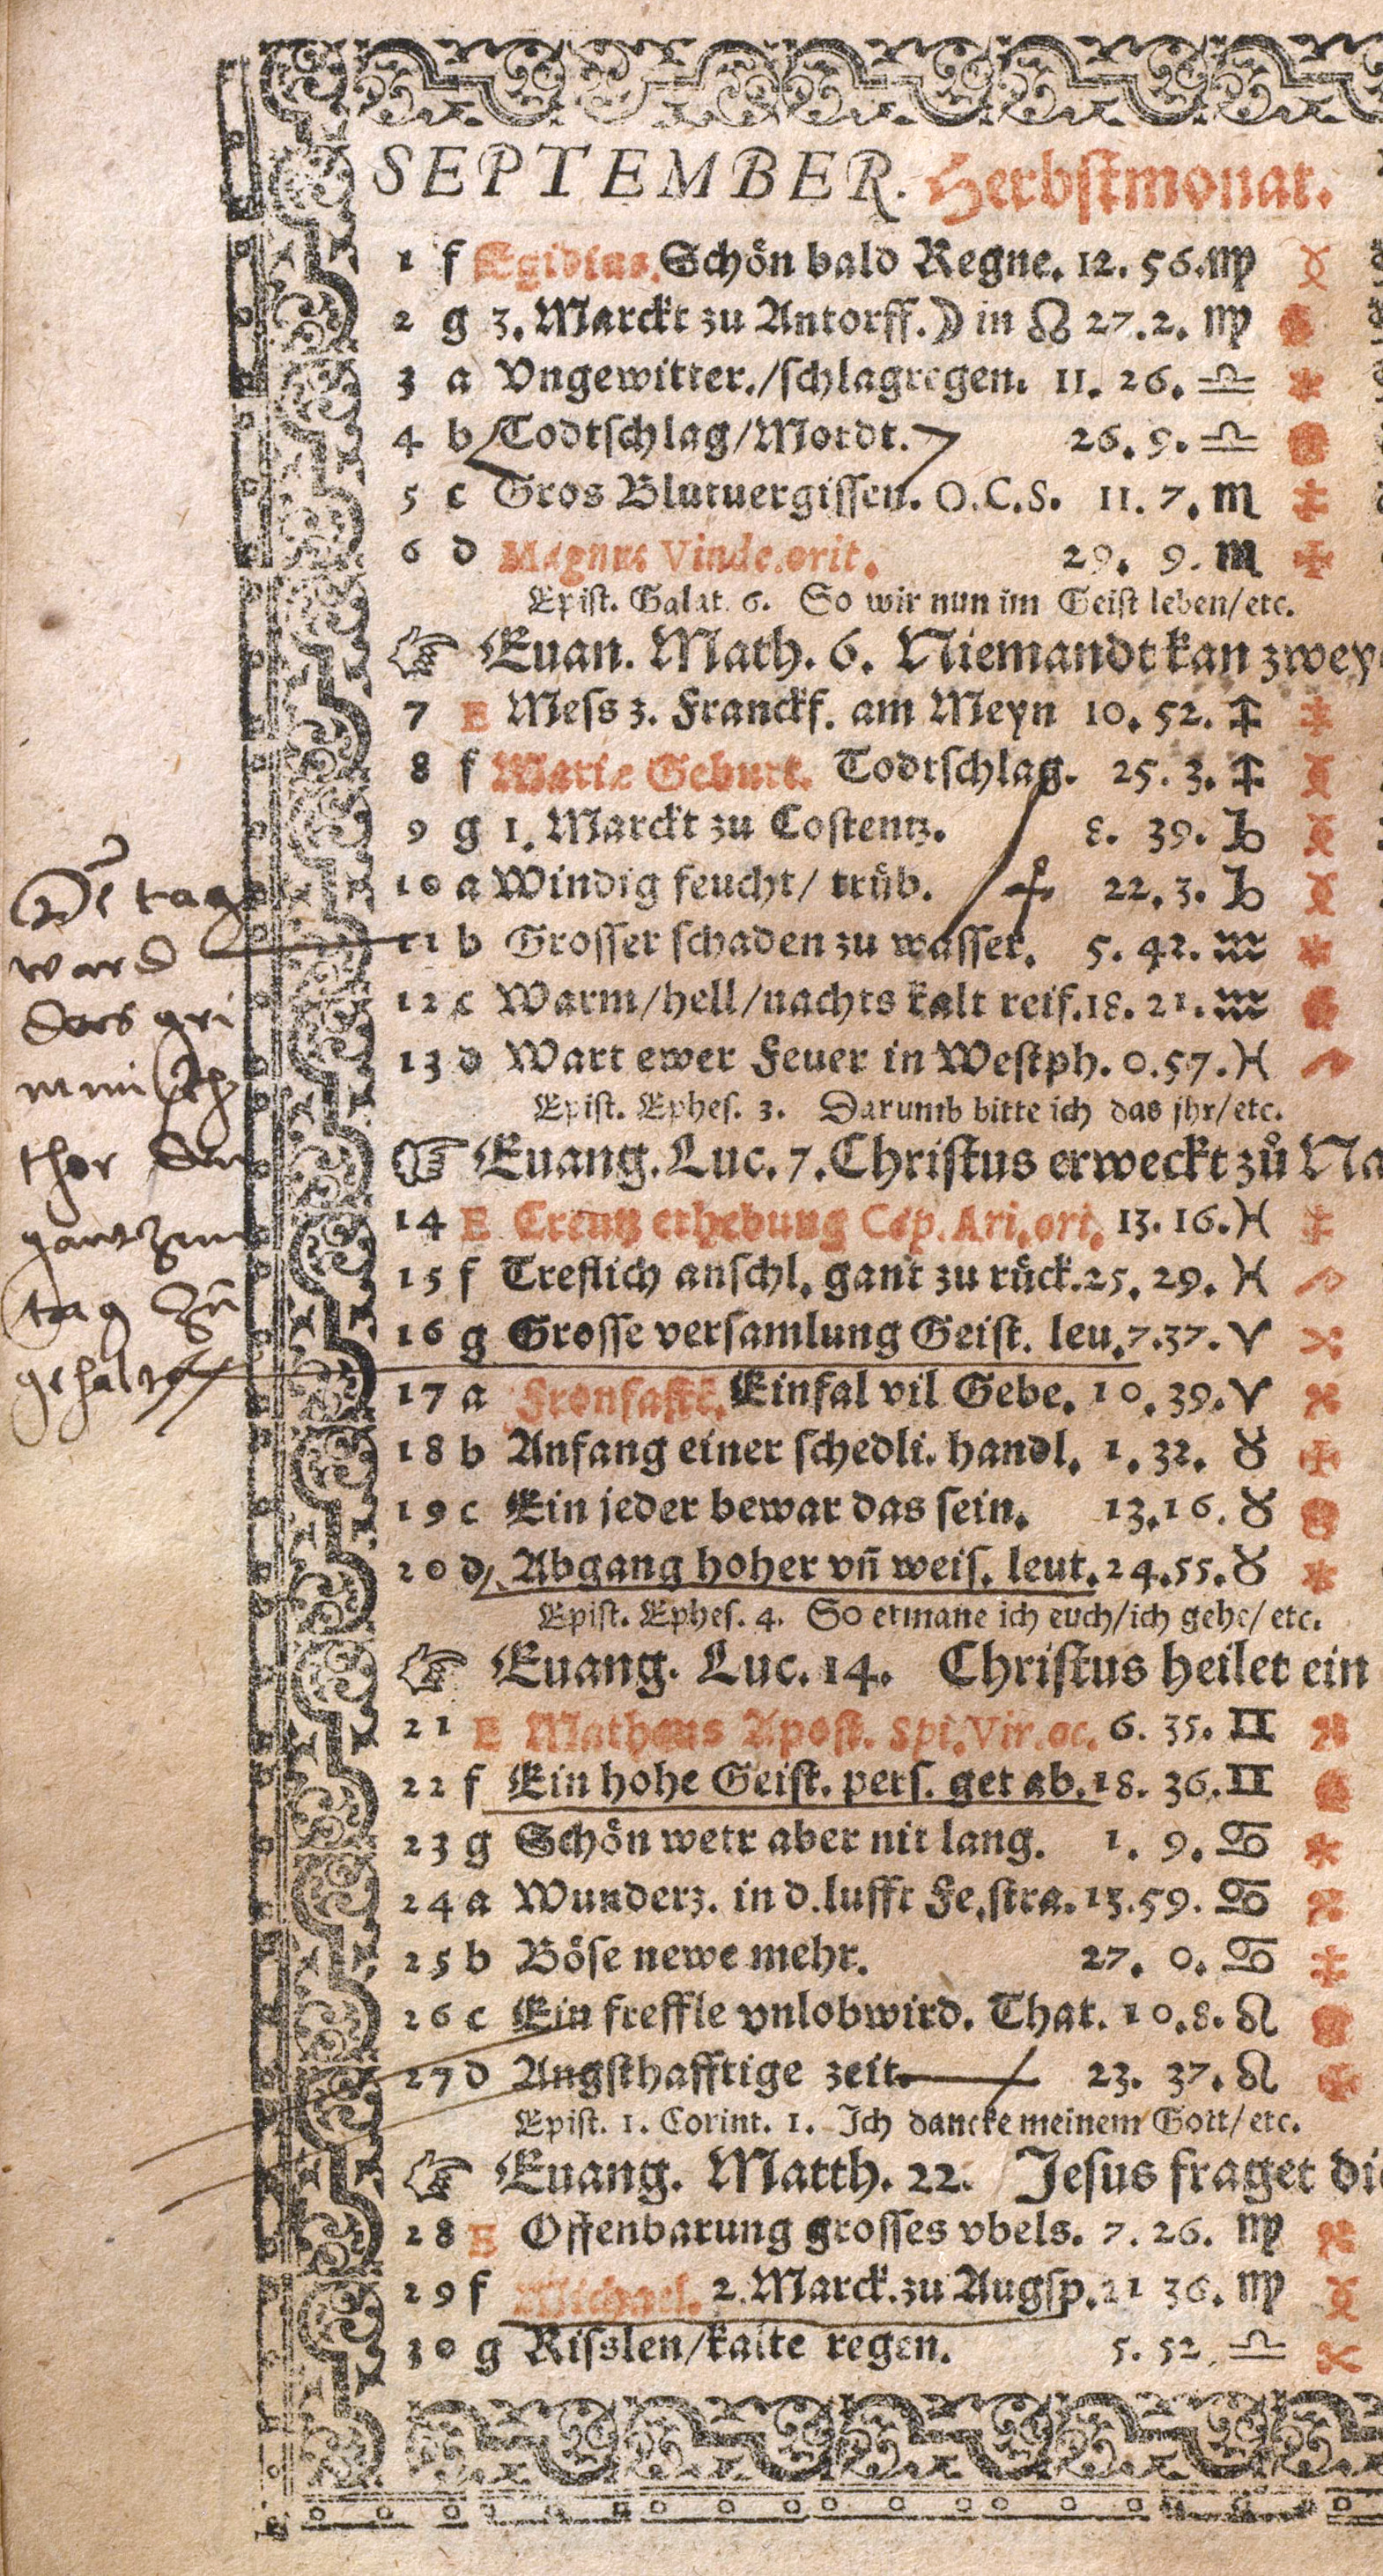 SEPTEMBER. Herbstmonat.
1 f Egidius. Schön bald Regne. 12. 56. ♍
2 g 3. Marckt zu Antorff. ☽ in ☊ 27. 2. ♍
3 a Vngewitter./schlagregen. 11. 26. ♎
4 b Todtschlag/Mordt. 26. 9. ♎
5 c Gros Blutuergissen. O.C.S. 11. 7. ♏
6 d Magnus Vinde.orit. 29. 9. ♏
Epist. Galat. 6. So wir nun im Geist leben/etc.
☞ Euan. Math. 6. Niemandt kan zwey
7 E Mess z. Franckf. am Meyn 10. 52. ♐
8 f Marie Geburt. Todtschlag. 25. 3. ♐
9 g 1. Marckt zu Costentz. 8. 39. ♑
10 a Windig feucht/ trüb. 22. 3. ♑
11 b Grosser schaden zu wasser. 5. 42. ♒
12 c Warm/hell/nachts kalt reif. 18. 21. ♒
13 d Wart ewer Feuer in Westph. 0. 57. ♓
Epist. Ephes. 3. Darumb bitte ich das jhr/etc.
☞ Euang. Luc. 7. Christus erweckt zů Na
14 E Creutz erhebung Cap. Ari. ori. 13. 16. ♓
15 f Treflich anschl. gant zu rück. 25. 29. ♓
16 g Grosse versamlung Geist. leu. 7. 37. ♈
17 a Fronfastē. Einfal vil Gebe. 10. 39. ♈
18 b Anfang einer schedli. handl. 1. 32. ♉
19 c Ein jeder bewar das sein. 13. 16. ♉
20 d Abgang hoher vñ weis. leut. 24. 55. ♉
Epist. Ephes. 4. So ermane ich euch/ich gehe/ etc.
☞ Euang. Luc. 14. Christus heilet ein
21 E Matheus Apost. Spi. Vir. oc. 6. 35. ♊
22 f Ein hohe Geist. pers. get ab. 18. 36. ♊
23 g Schön wetr aber nit lang. 1. 9. ♋
24 a Wunderz. in d. lufft Fe. stra. 13. 59. ♋
25 b Böse newe mehr. 27. 0. ♋
26 c Ein freffle vnlobwird. That. 10. 8. ♌
27 d Angsthafftige zeit. 23. 37. ♌
Epist. 1. Corint. 1. Ich dancke meinem Gott/etc.
☞ Euang. Matth. 22. Jesus fraget die
28 E Offenbarung grosses vbels. 7. 26. ♍
29 f Michael. 2. Marck. zu Augsp. 21 36. ♍
30 g Risslen/kalte regen. 5. 52. ♎
tag
ward
thor
tag